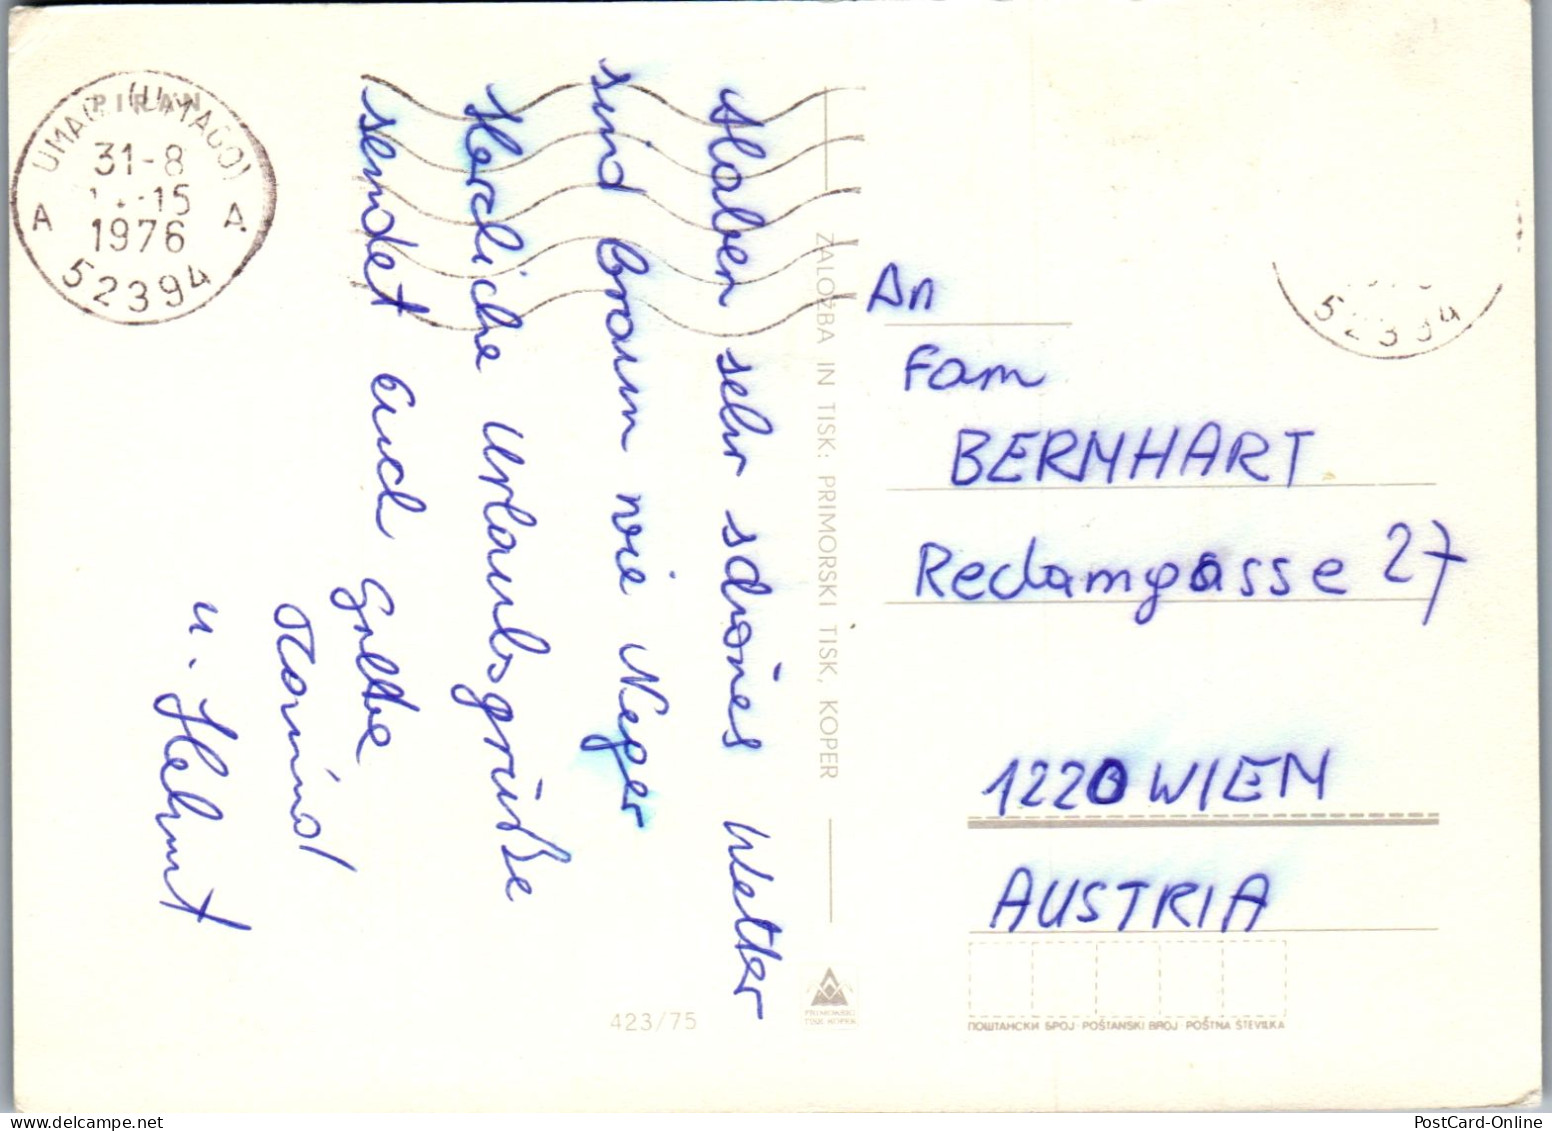 PIRAN
UMAG (UMAGO)
31-8
-15
1976
A A
52394
Haben sehr schönes Wetter
sind braun wie Neger
Herzliche Urlaubsgrüße
sendet Euch Gretke
u. Helmut
ZALOŽBA IN TISK: PRIMORSKI TISK, KOPER
423/75
PRIMORSKI
TISK KOPER
52394
An
Fam
BERNHART
Reclamgasse 27
1220 WIEN
AUSTRIA
ПОШТАНСКИ БРОЈ · POŠTANSKI BROJ · POŠTNA ŠTEVILKA
PostCard-Online